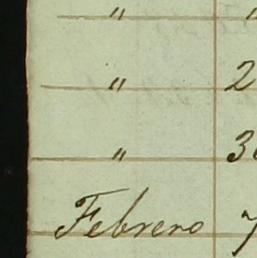 "
" 2
" 3
Febrero 7